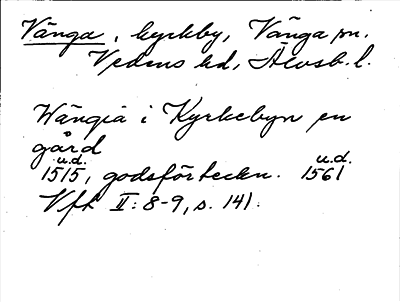 Vånga, kyrkby, Vånga sn.
Vedens hd, Älvsb. l.
Wångia i Kyrkebyn en
gård
u.d. u.d.
1515, godsförteckn. 1561
Vft II: 8-9, s. 141.